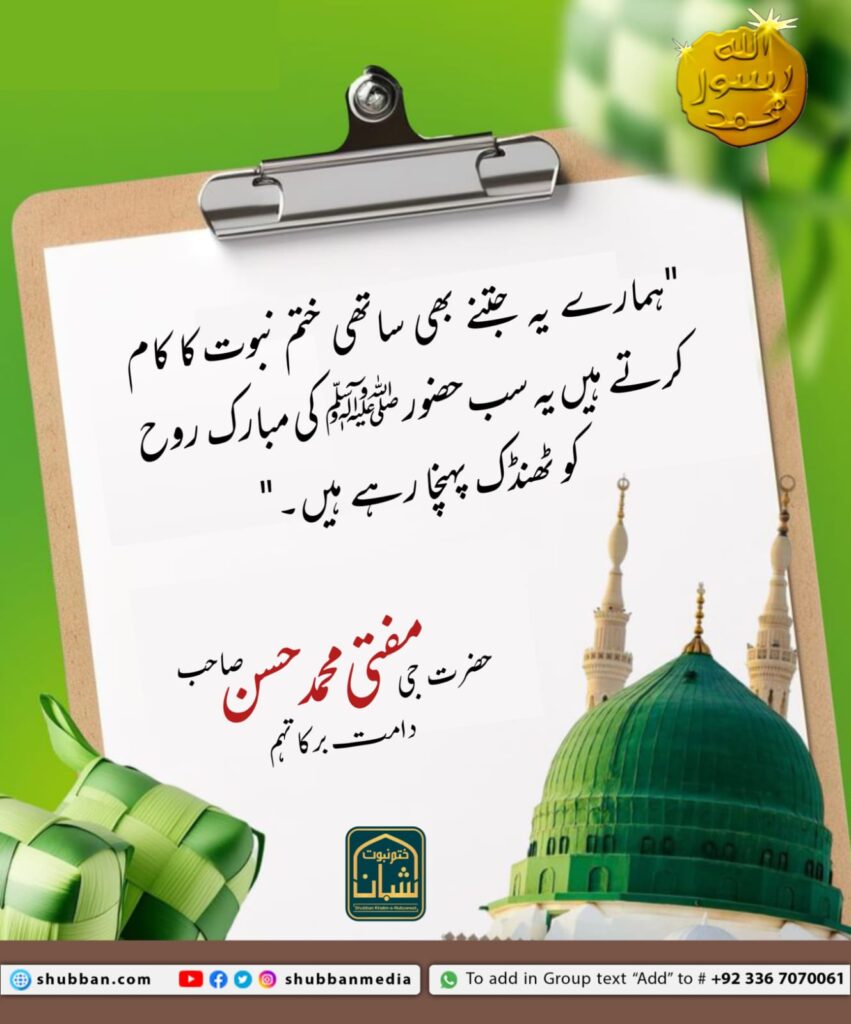 الله
رسول
محمد
"ہمارے یہ جتنے بھی ساتھی ختم نبوت کا کام
کرتے ہیں یہ سب حضور ﷺ کی مبارک روح
کو ٹھنڈک پہنچا رہے ہیں۔"
حضرت جی مفتی محمد حسن صاحب
دامت برکاتہم
ختم نبوت
شبان
Shubban Khatm-e-Nubuwwat
shubban.com
shubbanmedia
To add in Group text “Add” to # +92 336 7070061